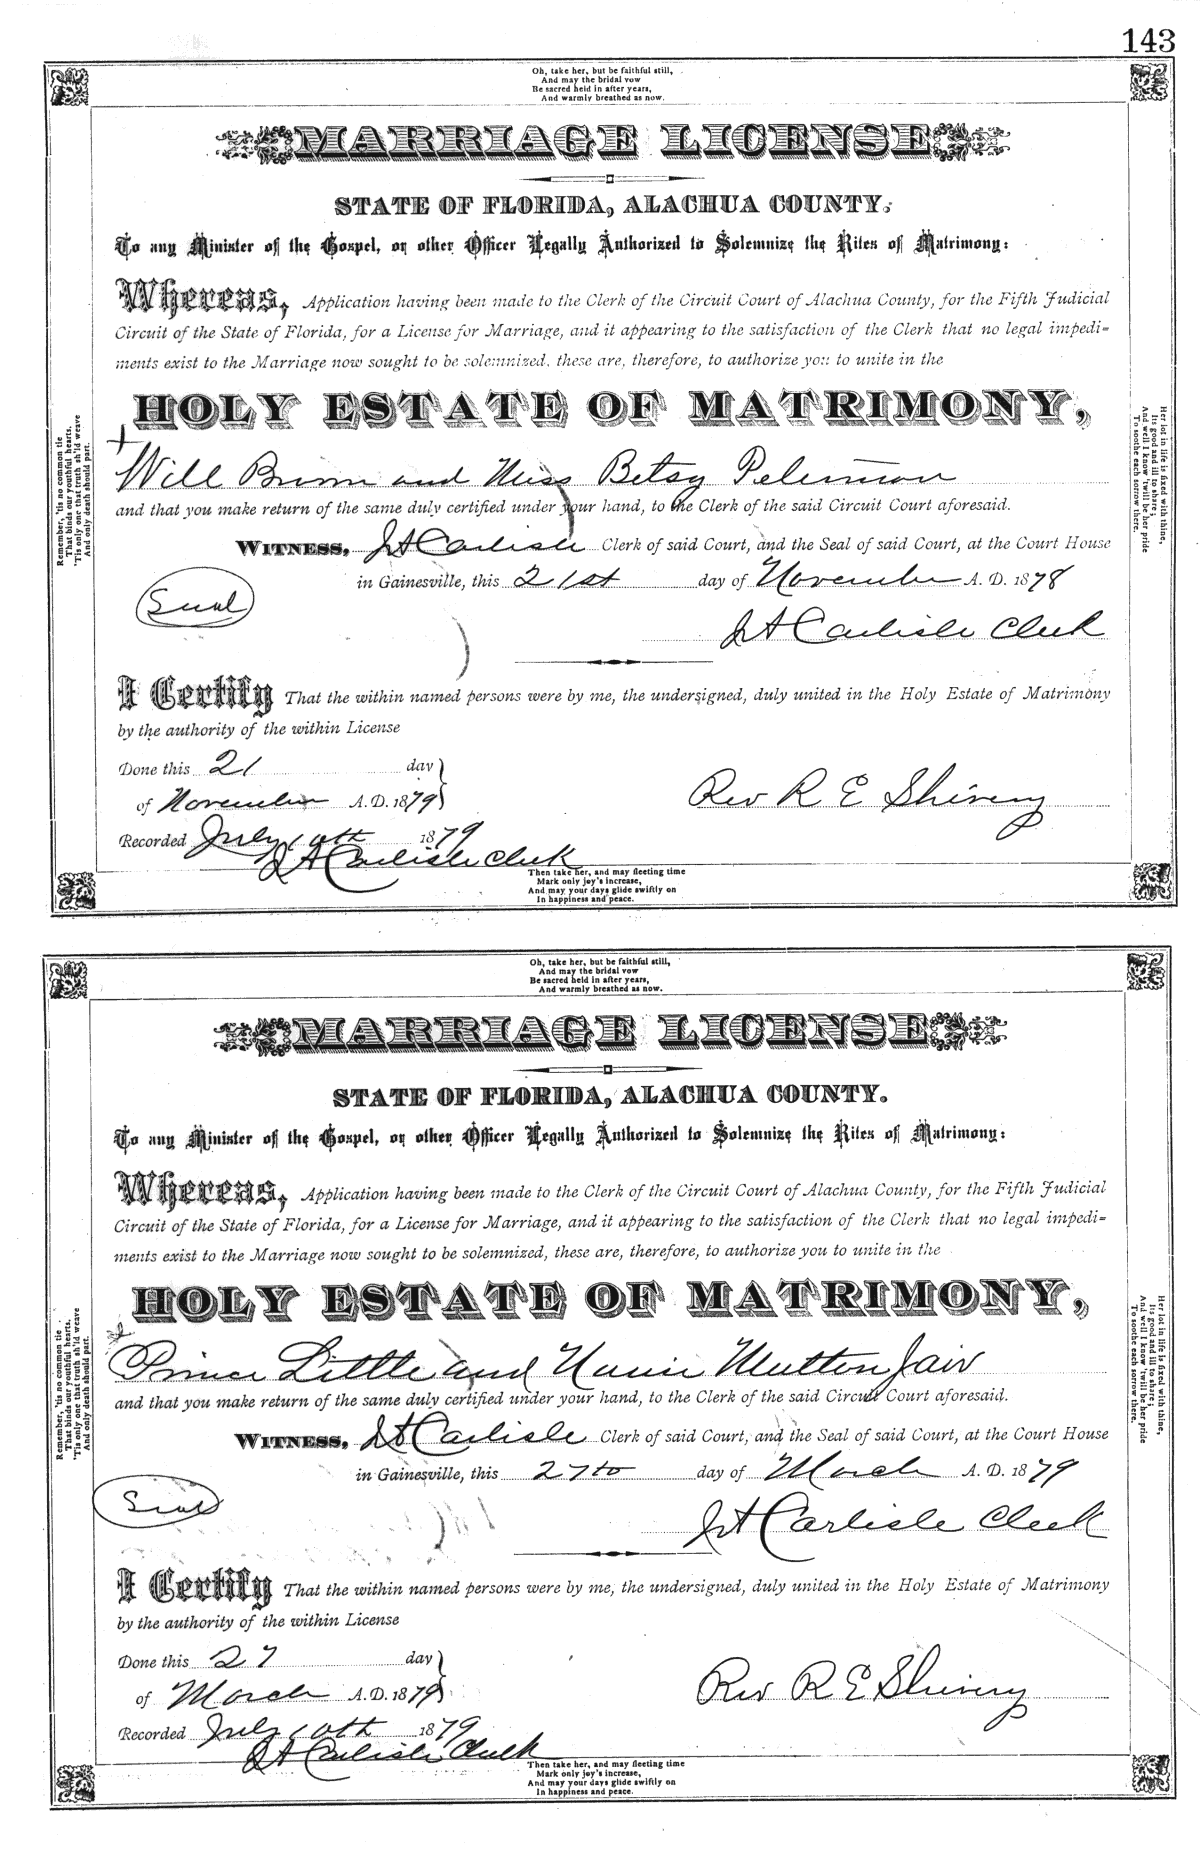 143
Oh, take her, but be faithful still,
And may the bridal vow
Be sacred held in after years,
And warmly breathed as now.
MARRIAGE LICENSE
STATE OF FLORIDA, ALACHUA COUNTY.
To any Minister of the Gospel, or other Officer Legally Authorized to Solemnize the Rites of Matrimony:
Whereas, Application having been made to the Clerk of the Circuit Court of Alachua County, for the Fifth Judicial
Circuit of the State of Florida, for a License for Marriage, and it appearing to the satisfaction of the Clerk that no legal impedi-
ments exist to the Marriage now sought to be solemnized, these are, therefore, to authorize you to unite in the
HOLY ESTATE OF MATRIMONY,
Will Brown and Miss Betsy
and that you make return of the same duly certified under your hand, to the Clerk of the said Circuit Court aforesaid.
WITNESS, J A Carlisle Clerk of said Court, and the Seal of said Court, at the Court House
in Gainesville, this 21st day of November A. D. 1878
Seal
J A Carlisle Clerk
I Certify That the within named persons were by me, the undersigned, duly united in the Holy Estate of Matrimony
by the authority of the within License
Done this 21 day
of November A. D. 1879
Rev R E Shivery
Recorded July 10th 1879
J A Carlisle Clerk
Then take her, and may fleeting time
Mark only joy's increase,
And may your days glide swiftly on
In happiness and peace.
Remember, 'tis no common tie
That binds our youthful hearts,
'Tis only one that truth sh'ld weave
And only death should part.
Her lot in life is fixed with thine,
Its good and ill to share;
And well I know 'twill be her pride
To soothe each sorrow there.
Oh, take her, but be faithful still,
And may the bridal vow
Be sacred held in after years,
And warmly breathed as now.
MARRIAGE LICENSE
STATE OF FLORIDA, ALACHUA COUNTY.
To any Minister of the Gospel, or other Officer Legally Authorized to Solemnize the Rites of Matrimony:
Whereas, Application having been made to the Clerk of the Circuit Court of Alachua County, for the Fifth Judicial
Circuit of the State of Florida, for a License for Marriage, and it appearing to the satisfaction of the Clerk that no legal impedi-
ments exist to the Marriage now sought to be solemnized, these are, therefore, to authorize you to unite in the
HOLY ESTATE OF MATRIMONY,
Prince Little and
and that you make return of the same duly certified under your hand, to the Clerk of the said Circuit Court aforesaid.
WITNESS, J A Carlisle Clerk of said Court, and the Seal of said Court, at the Court House
in Gainesville, this 27th day of March A. D. 1879
Seal
J A Carlisle Clerk
I Certify That the within named persons were by me, the undersigned, duly united in the Holy Estate of Matrimony
by the authority of the within License
Done this 27 day
of March A. D. 1879
Rev R E Shivery
Recorded July 10th 1879
J A Carlisle Clerk
Then take her, and may fleeting time
Mark only joy's increase,
And may your days glide swiftly on
In happiness and peace.
Remember, 'tis no common tie
That binds our youthful hearts,
'Tis only one that truth sh'ld weave
And only death should part.
Her lot in life is fixed with thine,
Its good and ill to share;
And well I know 'twill be her pride
To soothe each sorrow there.